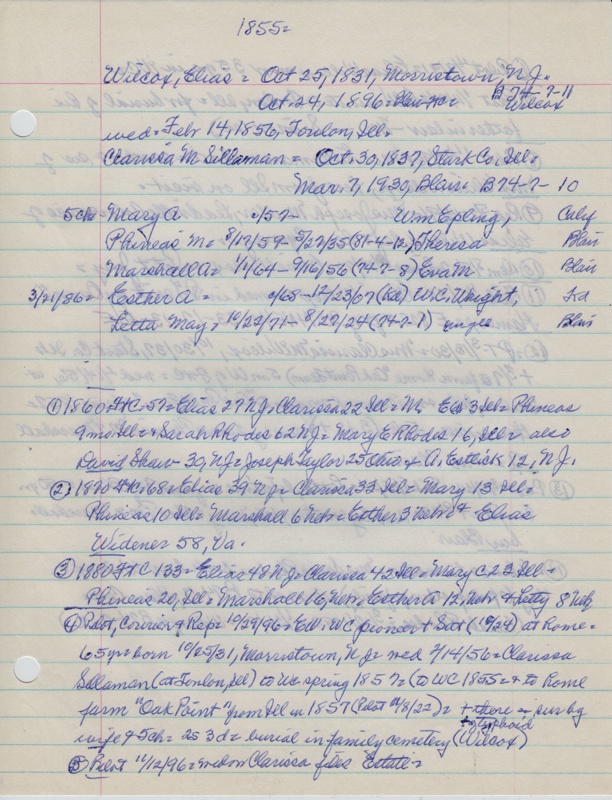 1855=
Wilcox, Elias = Oct 25, 1831, Morristown, N.J.
B 74-7-11
Oct. 24, 1896 = Wilcox
wed = Feb 14, 1856, Toulon, Ill.
Clarissa M Sillaman = Oct. 30, 1837, Stark Co, Ill.
Mar. 7, 1930, Blair. B74-7-10
5ch = Mary A c/57- Wm Epling, Calif
Phineas M = 8/17/59 - 5/27/35 (81-4-12) Theresa Blair
Marshall A = 1/1/64 - 9/16/56 (74-7-8) Eva M Blair
3/21/86 = Esther A = c/68 - 12/23/07 (Ed) W.C. Wright, Ind.
Letta May = 10/22/71 - 8/27/24 (74-7-7) single Blair
① 1860 = 57 = Elias 27 NJ = Clarissa 22 Ill = M. E 3 Ill = Phineas
9mo Ill = & Sarah Rhodes 62 NJ = Mary E Rhodes 16, Ill = also
David Shaw 30, NJ = Joseph Taylor 25 Ohio & A. Estlick 12, N.J.
② 1870 68 = Elias 39 NJ = Clarissa 33 Ill = Mary 13 Ill =
Phineas 10 Ill = Marshall 6 Neb = Esther 3 Neb = & Elias
Widener 58, Va.
③ 1880 FHC 133 = Elias 48 NJ = Clarissa 42 Ill = Mary C 23 Ill =
Phineas 20, Ill = Marshall 16, Neb, Esther A 12, Neb & Letty 8 Neb
④ Pilot, Courier & Rep = 10/29/96 = E.W. WC pioneer + Satt (10/24) at Rome =
65 yrs = born 10/25/31, Morristown, NJ = wed 2/14/56 = Clarissa
Sillaman (at Toulon, Ill) to Neb spring 1857 = (to WC 1855 = & to Rome
farm "Oak Point" from Ill in 1857 (Pilot 8/22) = + there = sur by
+ typhoid
wife & 5ch = 2s 3d = burial in family cemetery (Wilcox)
⑤ Pilot 11/12/96 = widow Clarissa files Estate =